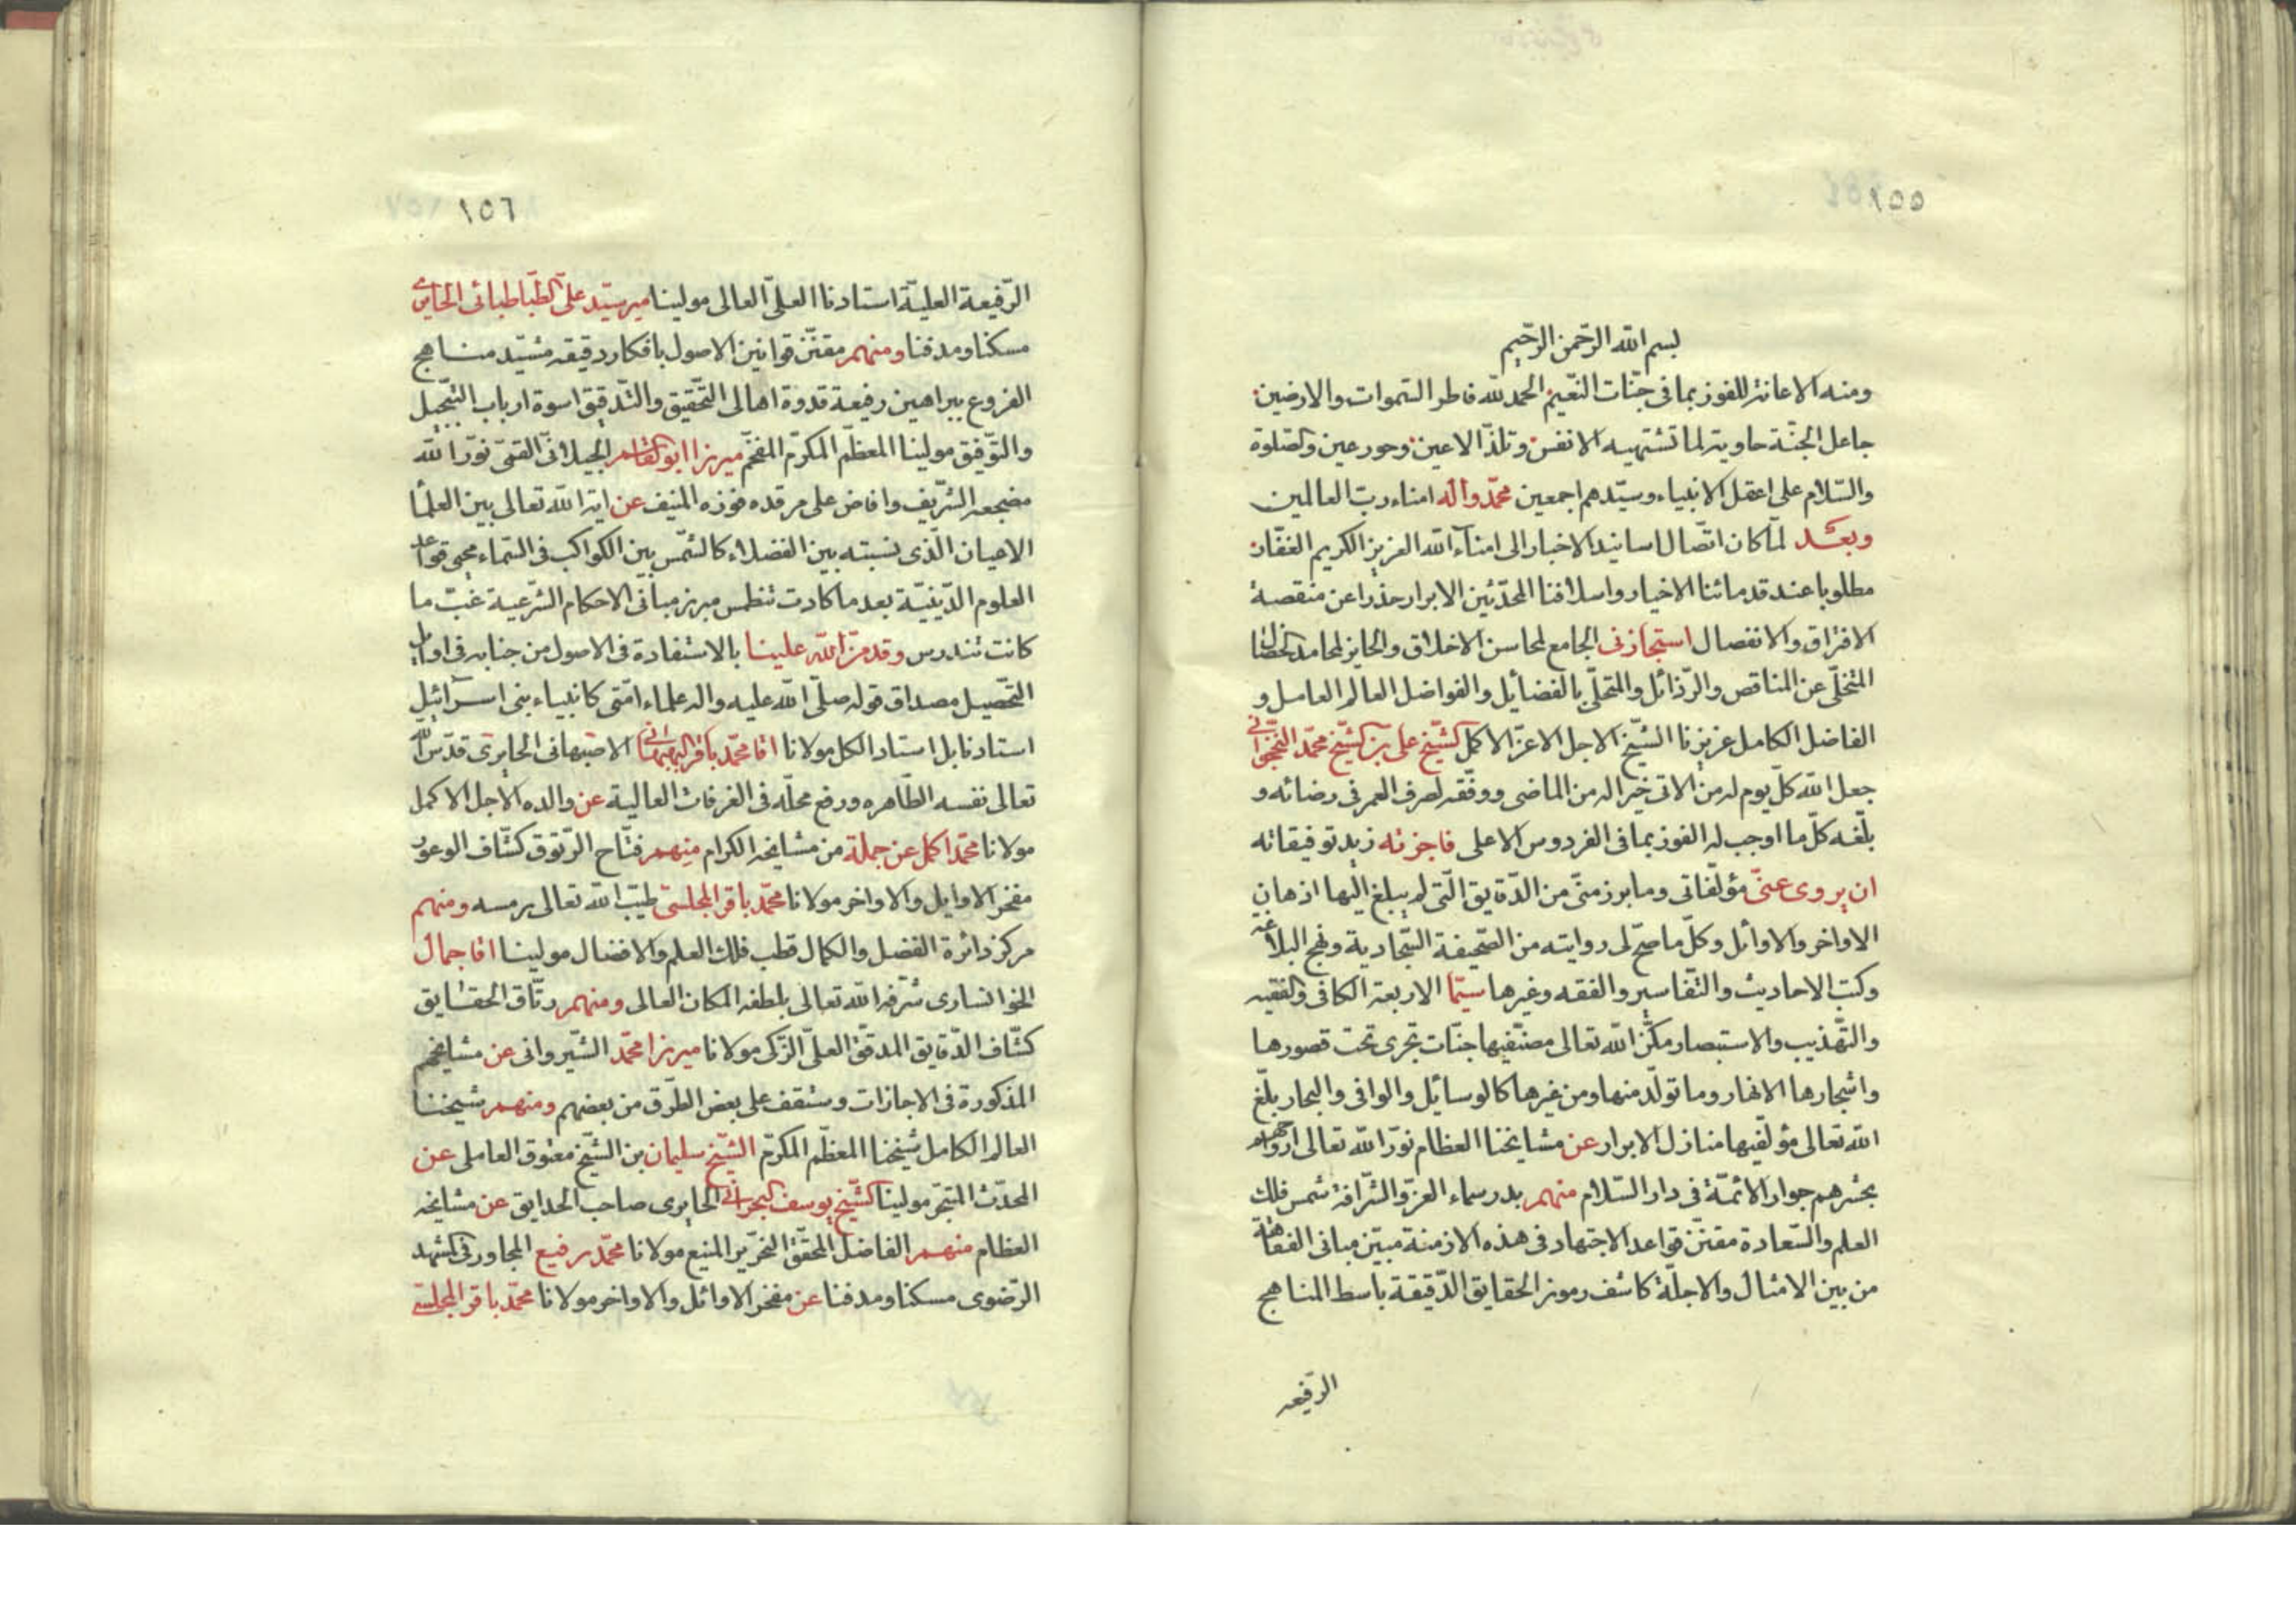 ١٥٥
بسم الله الرّحمن الرّحيم
ومنه الاعانة للفوز بما فى جنّات النّعيم الحمد لله فاطر السّموات والارضين
جاعل الجنّة حاوية لما تشتهيه الانفس وتلذّ الاعين وحور عين والصّلوة
والسّلام على اعقل الانبياء وسيّدهم اجمعين محمّد وآله امناء ربّ العالمين
وبعد لمّا كان اتّصال اسانيد الاخبار الى امناء الله العزيز الكريم الغفّار
مطلوبا عند قدمائنا الاخيار واسلافنا المحدّثين الابرار حذرا عن منقصة
الافتراق والانفصال استجازنى الجامع لمحاسن الاخلاق والحايز لمحامد الخصال
المتخلّى عن المناقص والرّذائل والمتحلّى بالفضائل والفواضل العالم العامل و
الفاضل الكامل عزيزنا الشّيخ الاجل الاعزّ الاكمل الشّيخ على بن الشّيخ محمّد النّخجوانى
جعل الله كلّ يوم له من الاتى خيرا له من الماضى ووفّقه لصرف العمر فى رضائه و
بلّغه كلّ ما اوجب له الفوز بما فى الفردوس الاعلى فاجزته زيد توفيقاته
ان يروى عنّى مؤلّفاتى وما برز منّى من الدّقايق الّتى لم يبلغ اليها اذهان
الاواخر والاوائل وكلّ ما صحّ لى روايته من الصّحيفة السّجادية ونهج البلاغة
وكتب الاحاديث والتّفاسير والفقه وغيرها سيّما الاربعة الكافى والفقيه
والتّهذيب والاستبصار مكّن الله تعالى مصنّفيها جنّات تجرى تحت قصورها
واشجارها الانهار وما تولّد منها ومن غيرها كالوسايل والوافى والبحار بلّغ
الله تعالى مؤلّفيها منازل الابرار عن مشايخنا العظام نوّر الله تعالى ارواحهم
بحشرهم جوار الائمّة فى دار السّلام منهم بدر سماء العزّ والشّرافة شمس فلك
العلم والسّعادة مقنّن قواعد الاجتهاد فى هذه الازمنة مبيّن مبانى الفقاهة
من بين الامثال والاجلّة كاشف رموز الحقايق الدّقيقة باسط المناهج
الرّفيعه
١٥٦
الرّفيعة العليّة استادنا العلىّ العالى مولينا مير سيّد علىّ الطّباطبائى الحايرى
مسكنا ومدفنا ومنهم مقنّن قوانين الاصول بافكار دقيقه مشيّد مناهج
الفروع ببراهين رفيعة قدوة اهالى التّحقيق والتّدقيق اسوة ارباب التّبجيل
والتّوفيق مولينا المعظّم المكرّم المفخّم ميرزا ابو القاسم الجيلانىّ القمىّ نوّر الله
مضجعه الشّريف وافاض على مرقده فوزه المنيف عن اية الله تعالى بين العلماء
الاعيان الّذى نسبته بين الفضلاء كالشّمس بين الكواكب فى السّماء محيى قواعد
العلوم الدّينيّة بعد ما كادت تنطمس مبرز مبانى الاحكام الشّرعية غبّ ما
كانت تندرس وقد منّ الله علينا بالاستفادة فى الاصول من جنابه فى اوايل
التّحصيل مصداق قوله صلّى الله عليه واله علماء امّتى كانبياء بنى اسرائيل
استادنا بل استاد الكل مولانا اقا محمّد باقر البهبهانى الاصبهانى الحايرى قدّس الله
تعالى نفسه الطّاهره ورفع محلّه فى الغرفات العالية عن والده الاجل الاكمل
مولانا محمّد اكمل عن جملة من مشايخه الكرام منهم فتّاح الرّتوق كشّاف الوعور
مفخر الاوايل والاواخر مولانا محمّد باقر المجلسى طيّب الله تعالى رمسه ومنهم
مركز دائرة الفضل والكمال قطب فلك العلم والافضال مولينا اقا جمال
الخوانسارى شرّفه الله تعالى بلطفه المكان العالى ومنهم رتّاق الحقايق
كشّاف الدّقايق المدقّق العلىّ الزّكى مولانا ميرزا محمّد الشّيروانى عن مشايخهم
المذكورة فى الاجازات وستقف على بعض الطّرق من بعضهم ومنهم شيخنا
العالم الكامل شيخنا المعظّم المكرّم الشّيخ سليمان بن الشّيخ معتوق العاملى عن
المحدّث المتبحّر مولينا الشّيخ يوسف البحرانى الحايرى صاحب الحدايق عن مشايخه
العظام منهم الفاضل المحقّق النّحرير المنيع مولانا محمّد رفيع المجاور فى المشهد
الرّضوى مسكنا ومدفنا عن مفخر الاوائل والاواخر مولانا محمّد باقر المجلسى